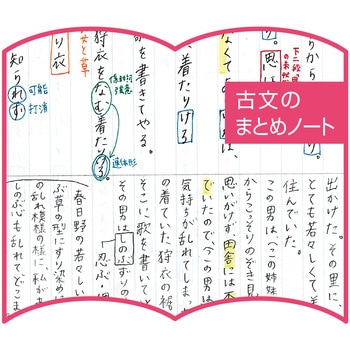 古文の
まとめノート
り衣
を書きてやる。
狩衣をなむ着たりける。
係助詞
強意
連体形
、着たりけ
知られず
可能
打消
出かけた。その里に、
とても若々しくて美
住んでいた。
この男は、(この姉妹
からこっそりのぞき見
思いがけず、田舎には不
でいたので、(この男は
気持ちが乱れてしま
の着ていた狩衣の裾
そこに歌を書いて
その男は しのぶずりの
忍ぶ・
春日野の若々しい
ぶ草の型にすり染めに
の乱れ模様の様に私が
しのぶ心も乱れて、どこま